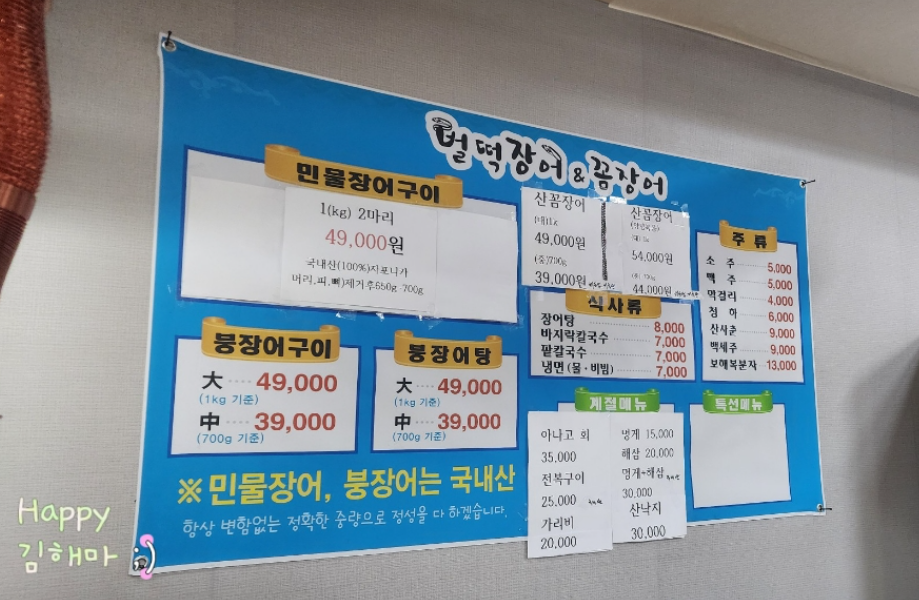 벌떡장어 & 꼼장어
민물장어구이
1(kg) 2마리
49,000원
국내산(100%)자포니카
머리,피,뼈)제거후650g-700g
붕장어구이
大 ···· 49,000
(1kg 기준)
中 ···· 39,000
(700g 기준)
붕장어탕
大 ···· 49,000
(1kg 기준)
中 ···· 39,000
(700g 기준)
※ 민물장어, 붕장어는 국내산
항상 변함없는 정확한 중량으로 정성을 다 하겠습니다.
산꼼장어
(대)1k
49,000원
(중)700g
39,000원
산꼼장어
54,000원
44,000원
식사류
장어탕 8,000
바지락칼국수 7,000
팥칼국수 7,000
냉면 (물·비빔) 7,000
주 류
소 주 5,000
맥 주 5,000
막걸리 4,000
청 하 6,000
산사춘 9,000
백세주 9,000
보해복분자 13,000
계절메뉴
아나고 회
35,000
전복구이
25,000
가리비
20,000
멍게 15,000
해삼 20,000
멍게+해삼
30,000
산낙지
30,000
특선메뉴
Happy
김해마 ;)